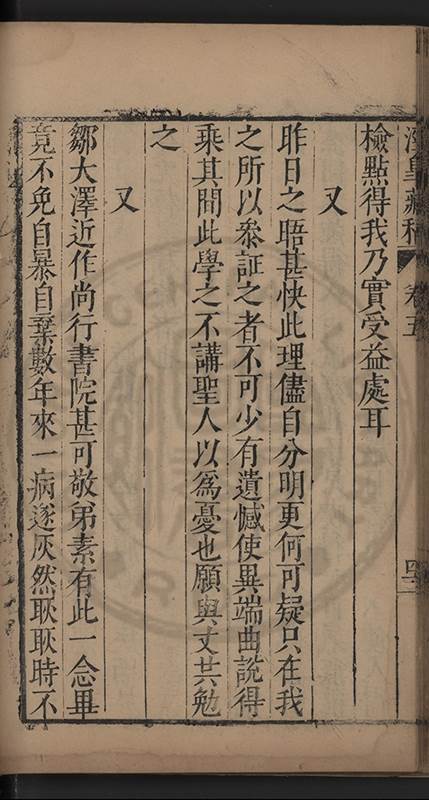 涇臯藏稿 卷五 四二
檢點得我乃實受益處耳
又
昨日之晤甚快此理儘自分明更何可疑只在我
之所以叅証之者不可少有遺憾使異端曲說得
乘其間此學之不講聖人以爲憂也願與丈共勉
之
又
鄒大澤近作尚行書院甚可敬弟素有此一念畢
竟不免自暴自棄數年來一病遂灰然耿耿時不